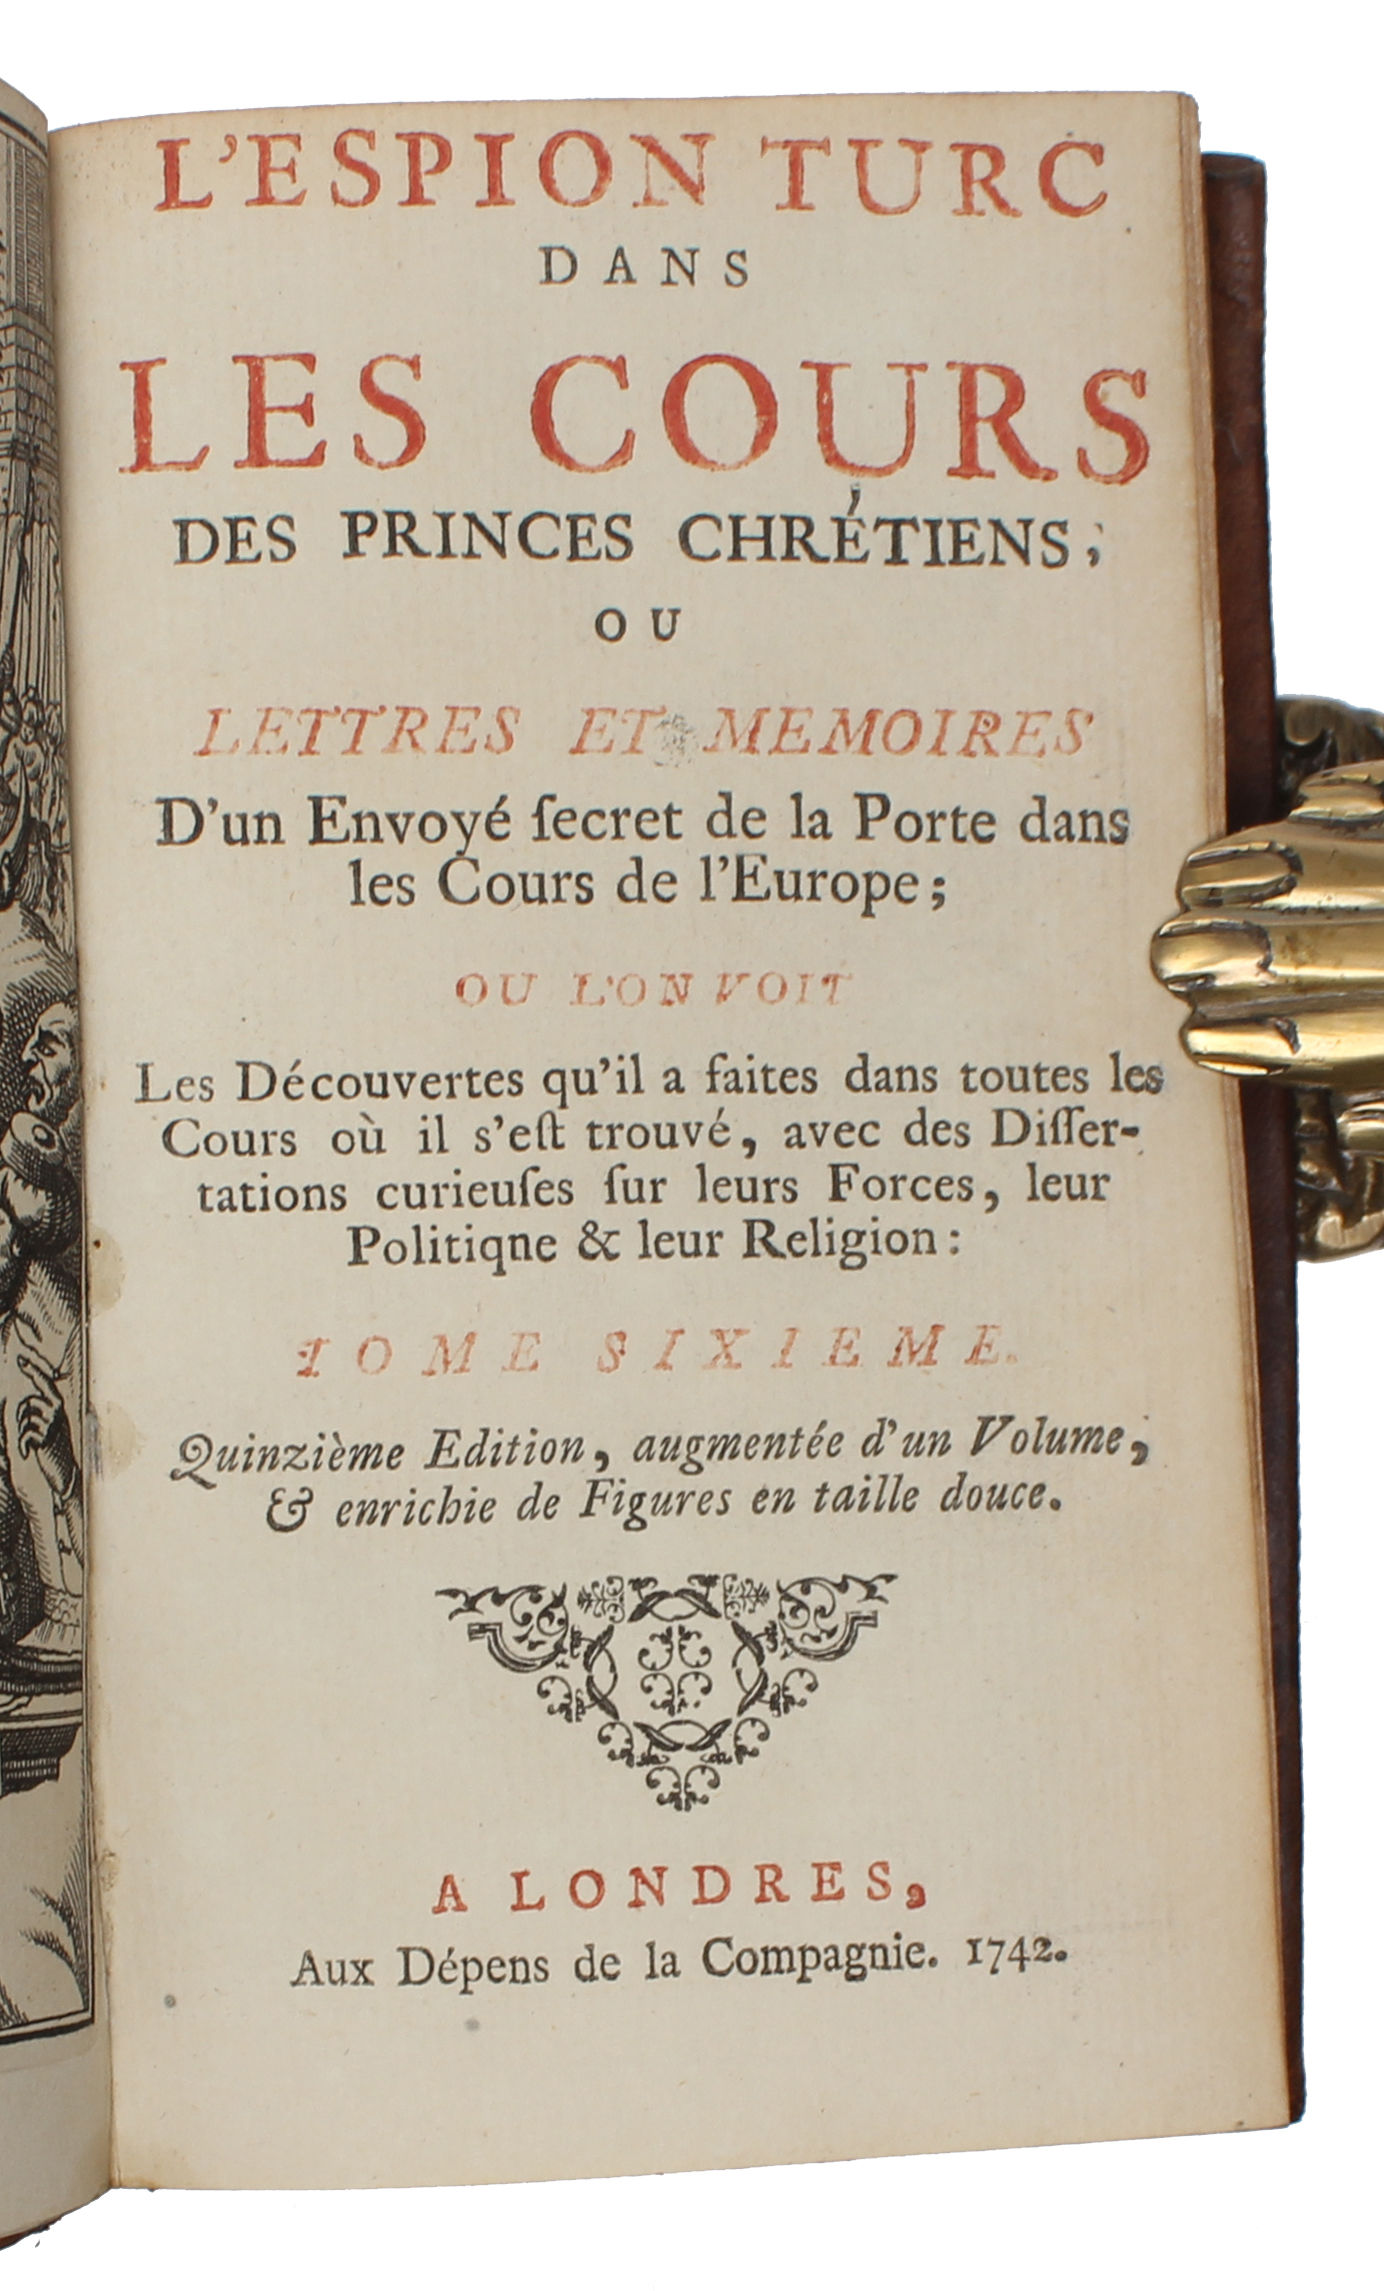 L'ESPION TURC
DANS
LES COURS
DES PRINCES CHRÉTIENS;
OU
LETTRES ET MEMOIRES
D'un Envoyé ſecret de la Porte dans
les Cours de l'Europe;
OU L'ON VOIT
Les Découvertes qu'il a faites dans toutes les
Cours où il s'eſt trouvé, avec des Diſſer-
tations curieuſes ſur leurs Forces, leur
Politiqne & leur Religion:
TOME SIXIEME.
Quinzième Edition, augmentée d'un Volume,
& enrichie de Figures en taille douce.
A LONDRES,
Aux Dépens de la Compagnie. 1742.